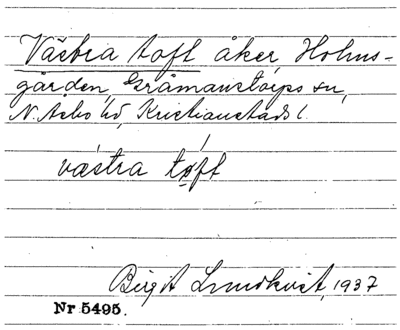 Västra toft åker, Holms-
gården, Gråmanstorps sn,
N. Åsbo hd, Kristianstads l.
västra toft
Birgit Lundkvist, 1937
Nr 5495.